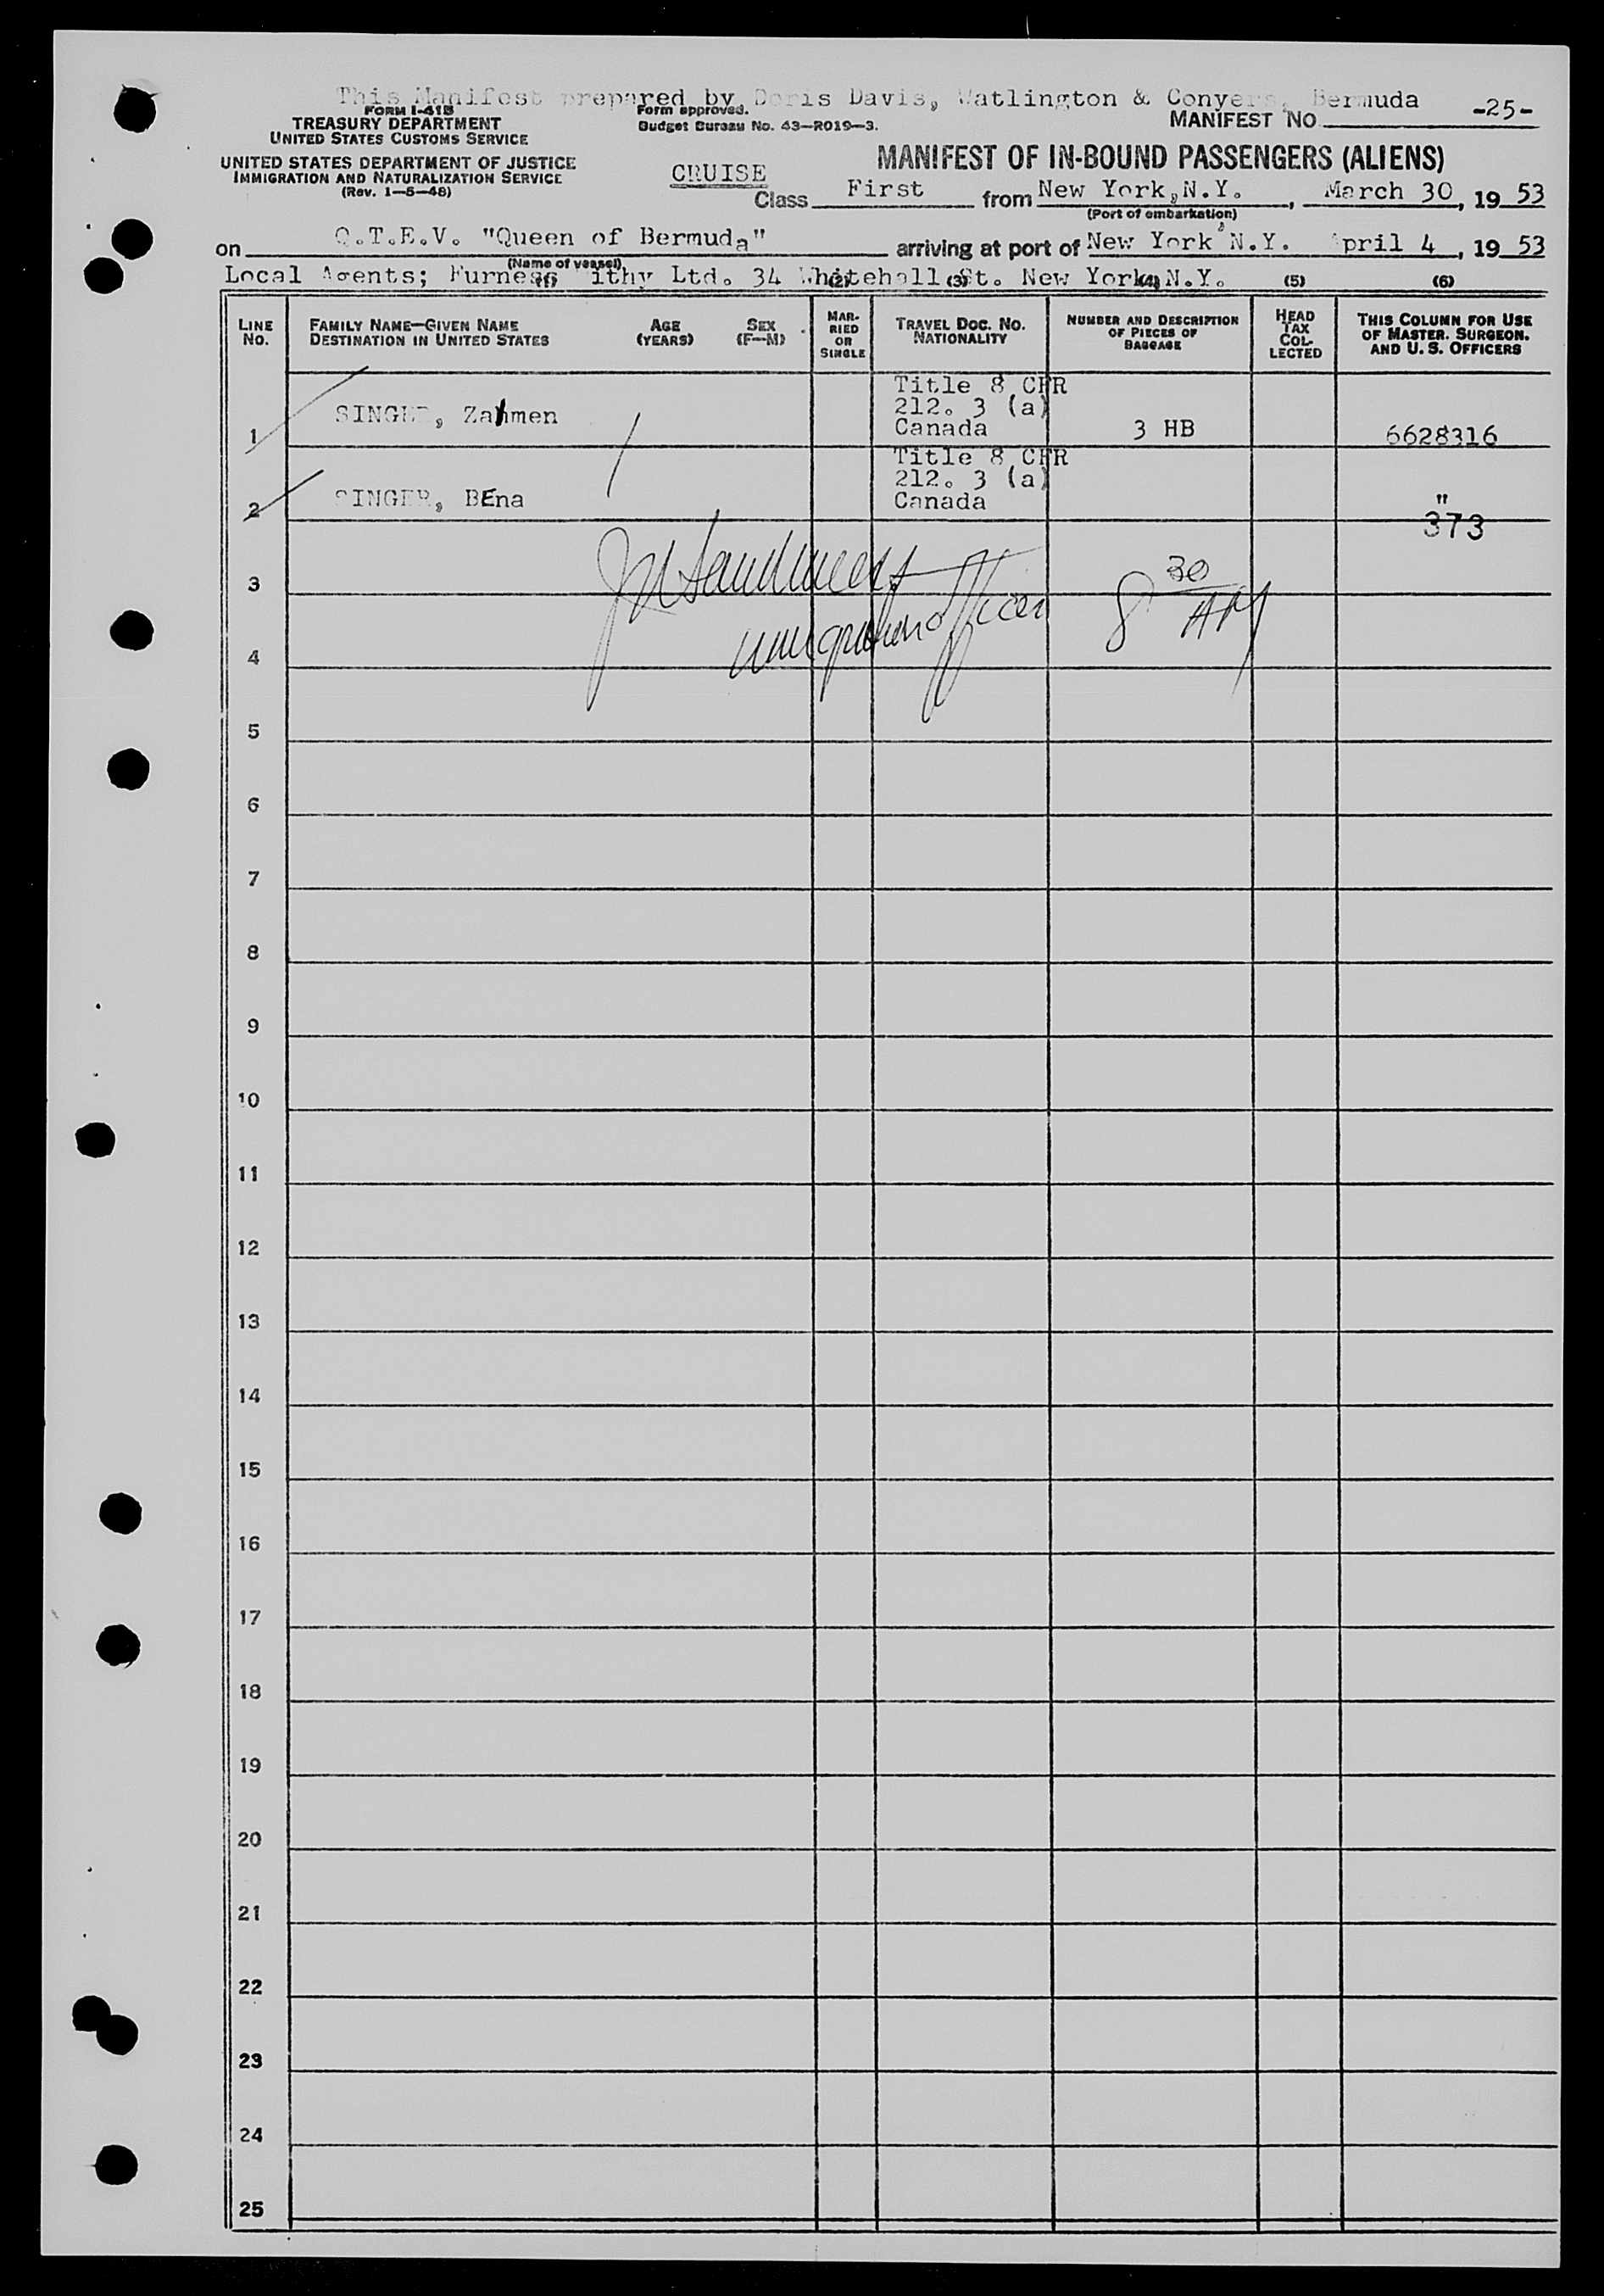 This Manifest prepared by Doris Davis, Watlington & Conyers, Bermuda
FORM I-41B
TREASURY DEPARTMENT
UNITED STATES CUSTOMS SERVICE
UNITED STATES DEPARTMENT OF JUSTICE
IMMIGRATION AND NATURALIZATION SERVICE
(Rev. 1-5-48)
Form approved.
Budget Bureau No. 43-R019-3.
MANIFEST NO -25-
MANIFEST OF IN-BOUND PASSENGERS (ALIENS)
CRUISE
Class First from New York, N.Y., March 30, 19 53
(Port of embarkation)
on Q.T.E.V. "Queen of Bermuda" arriving at port of New York, N.Y. April 4, 19 53
(Name of vessel)
Local Agents; Furness Withy Ltd. 34 Whitehall St. New York, N.Y.
(1) (2) (3) (4) (5) (6)
LINE NO.
FAMILY NAME—GIVEN NAME
DESTINATION IN UNITED STATES
AGE (YEARS)
SEX (F—M)
MARRIED OR SINGLE
TRAVEL DOC. NO.
NATIONALITY
NUMBER AND DESCRIPTION OF PIECES OF BAGGAGE
HEAD TAX COLLECTED
THIS COLUMN FOR USE OF MASTER, SURGEON, AND U. S. OFFICERS
Title 8 CFR
212. 3 (a)
1 SINGER, Zalmen Canada 3 HB 6628316
Title 8 CFR
212. 3 (a)
2 SINGER, BEna Canada "
373
3
30
8 AM
Immigration Officer
4
5
6
7
8
9
10
11
12
13
14
15
16
17
18
19
20
21
22
23
24
25